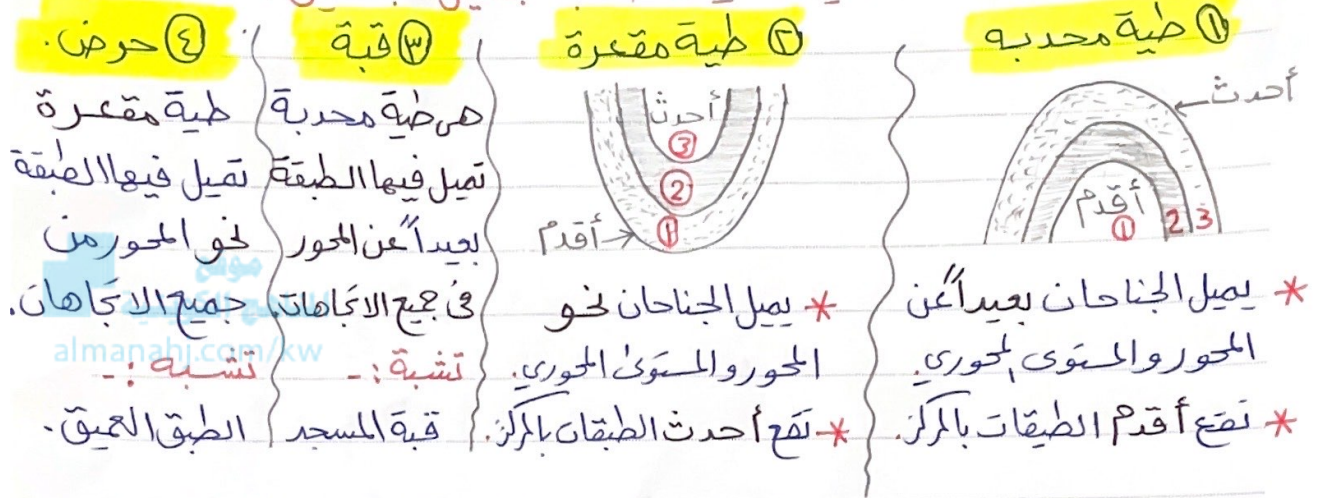 ① طية محدبه
أحدث
أقدم
① 2 3
* يميل الجناحان بعيداً عن
المحور والمستوى المحوري.
* تقع أقدم الطبقات بالمركز.
② طية مقعرة
أحدث
③
②
①
أقدم
* يميل الجناحان نحو
المحور والمستوى المحوري.
* تقع أحدث الطبقات بالمركز.
③ قبة
هى طية محدبة
تميل فيها الطبقة
بعيداً عن المحور
فى جميع الاتجاهات.
تشبة :-
قبة المسجد
④ حوض.
طية مقعرة
تميل فيها الطبقة
نحو المحور من
جميع الاتجاهات.
تشبة :-
الطبق العميق.
موقع
المناهج الكويتية
almanahj.com/kw